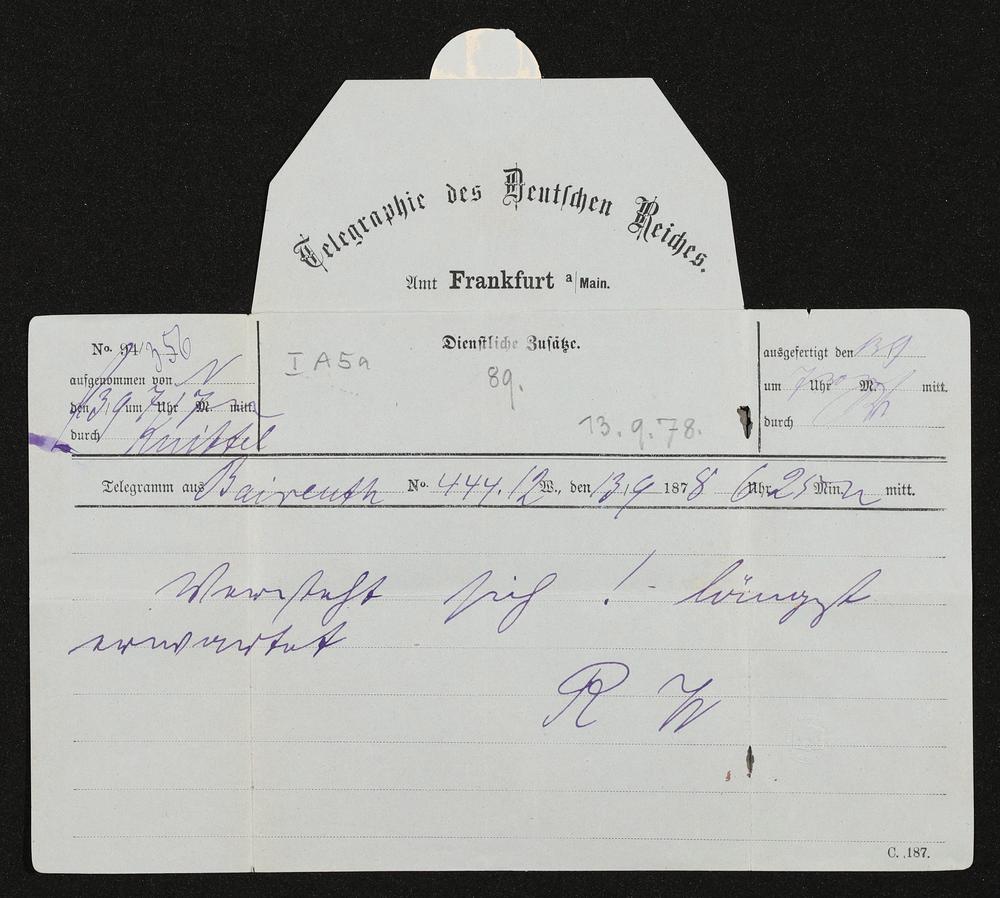 Telegraphie des Deutschen Reiches.
Amt Frankfurt a/Main.
Dienstliche Zusätze.
I A5a
89.
13.9.78.
No. 94/356
aufgenommen von N
den 13/9 um 7 Uhr 17 M. n mitt.
durch Knittel
ausgefertigt den 13 9
um 7 Uhr M. mitt.
durch
Telegramm aus Baireuth No. 444. 12 W., den 13/9 1878 6 Uhr 25 Min. n mitt.
Versteht sich! längst
erwartet
R W
C. 187.